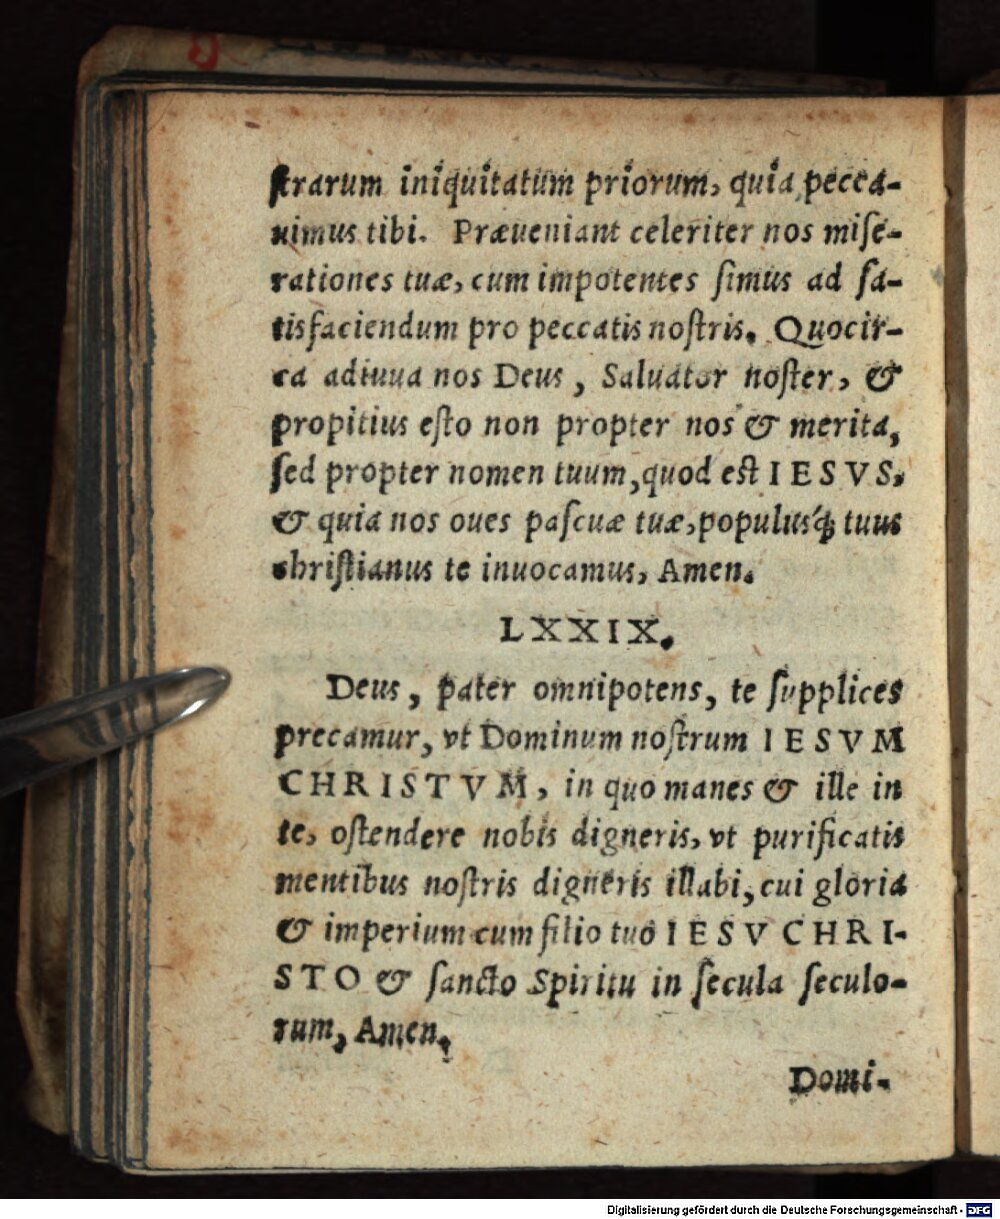 ſtrarum iniquitatum priorum, quia pecca-
uimus tibi. Præueniant celeriter nos miſe-
rationes tuæ, cum impotentes ſimus ad ſa-
tisfaciendum pro peccatis noſtris. Quocir-
ca adiuua nos Deus, Saluator noſter, &
propitius eſto non propter nos & merita,
ſed propter nomen tuum, quod eſt IESVS,
& quia nos oues paſcuæ tuæ, populusq́; tuus
chriſtianus te inuocamus, Amen.
LXXIX.
Deus, pater omnipotens, te ſupplices
precamur, vt Dominum noſtrum IESVM
CHRISTVM, in quo manes & ille in
te, oſtendere nobis digneris, vt purificatis
mentibus noſtris digneris illabi, cui gloria
& imperium cum filio tuo IESV CHRI-
STO & ſancto Spiritu in ſecula ſeculo-
rum, Amen.
Domi-
Digitalisierung gefördert durch die Deutsche Forschungsgemeinschaft - DFG